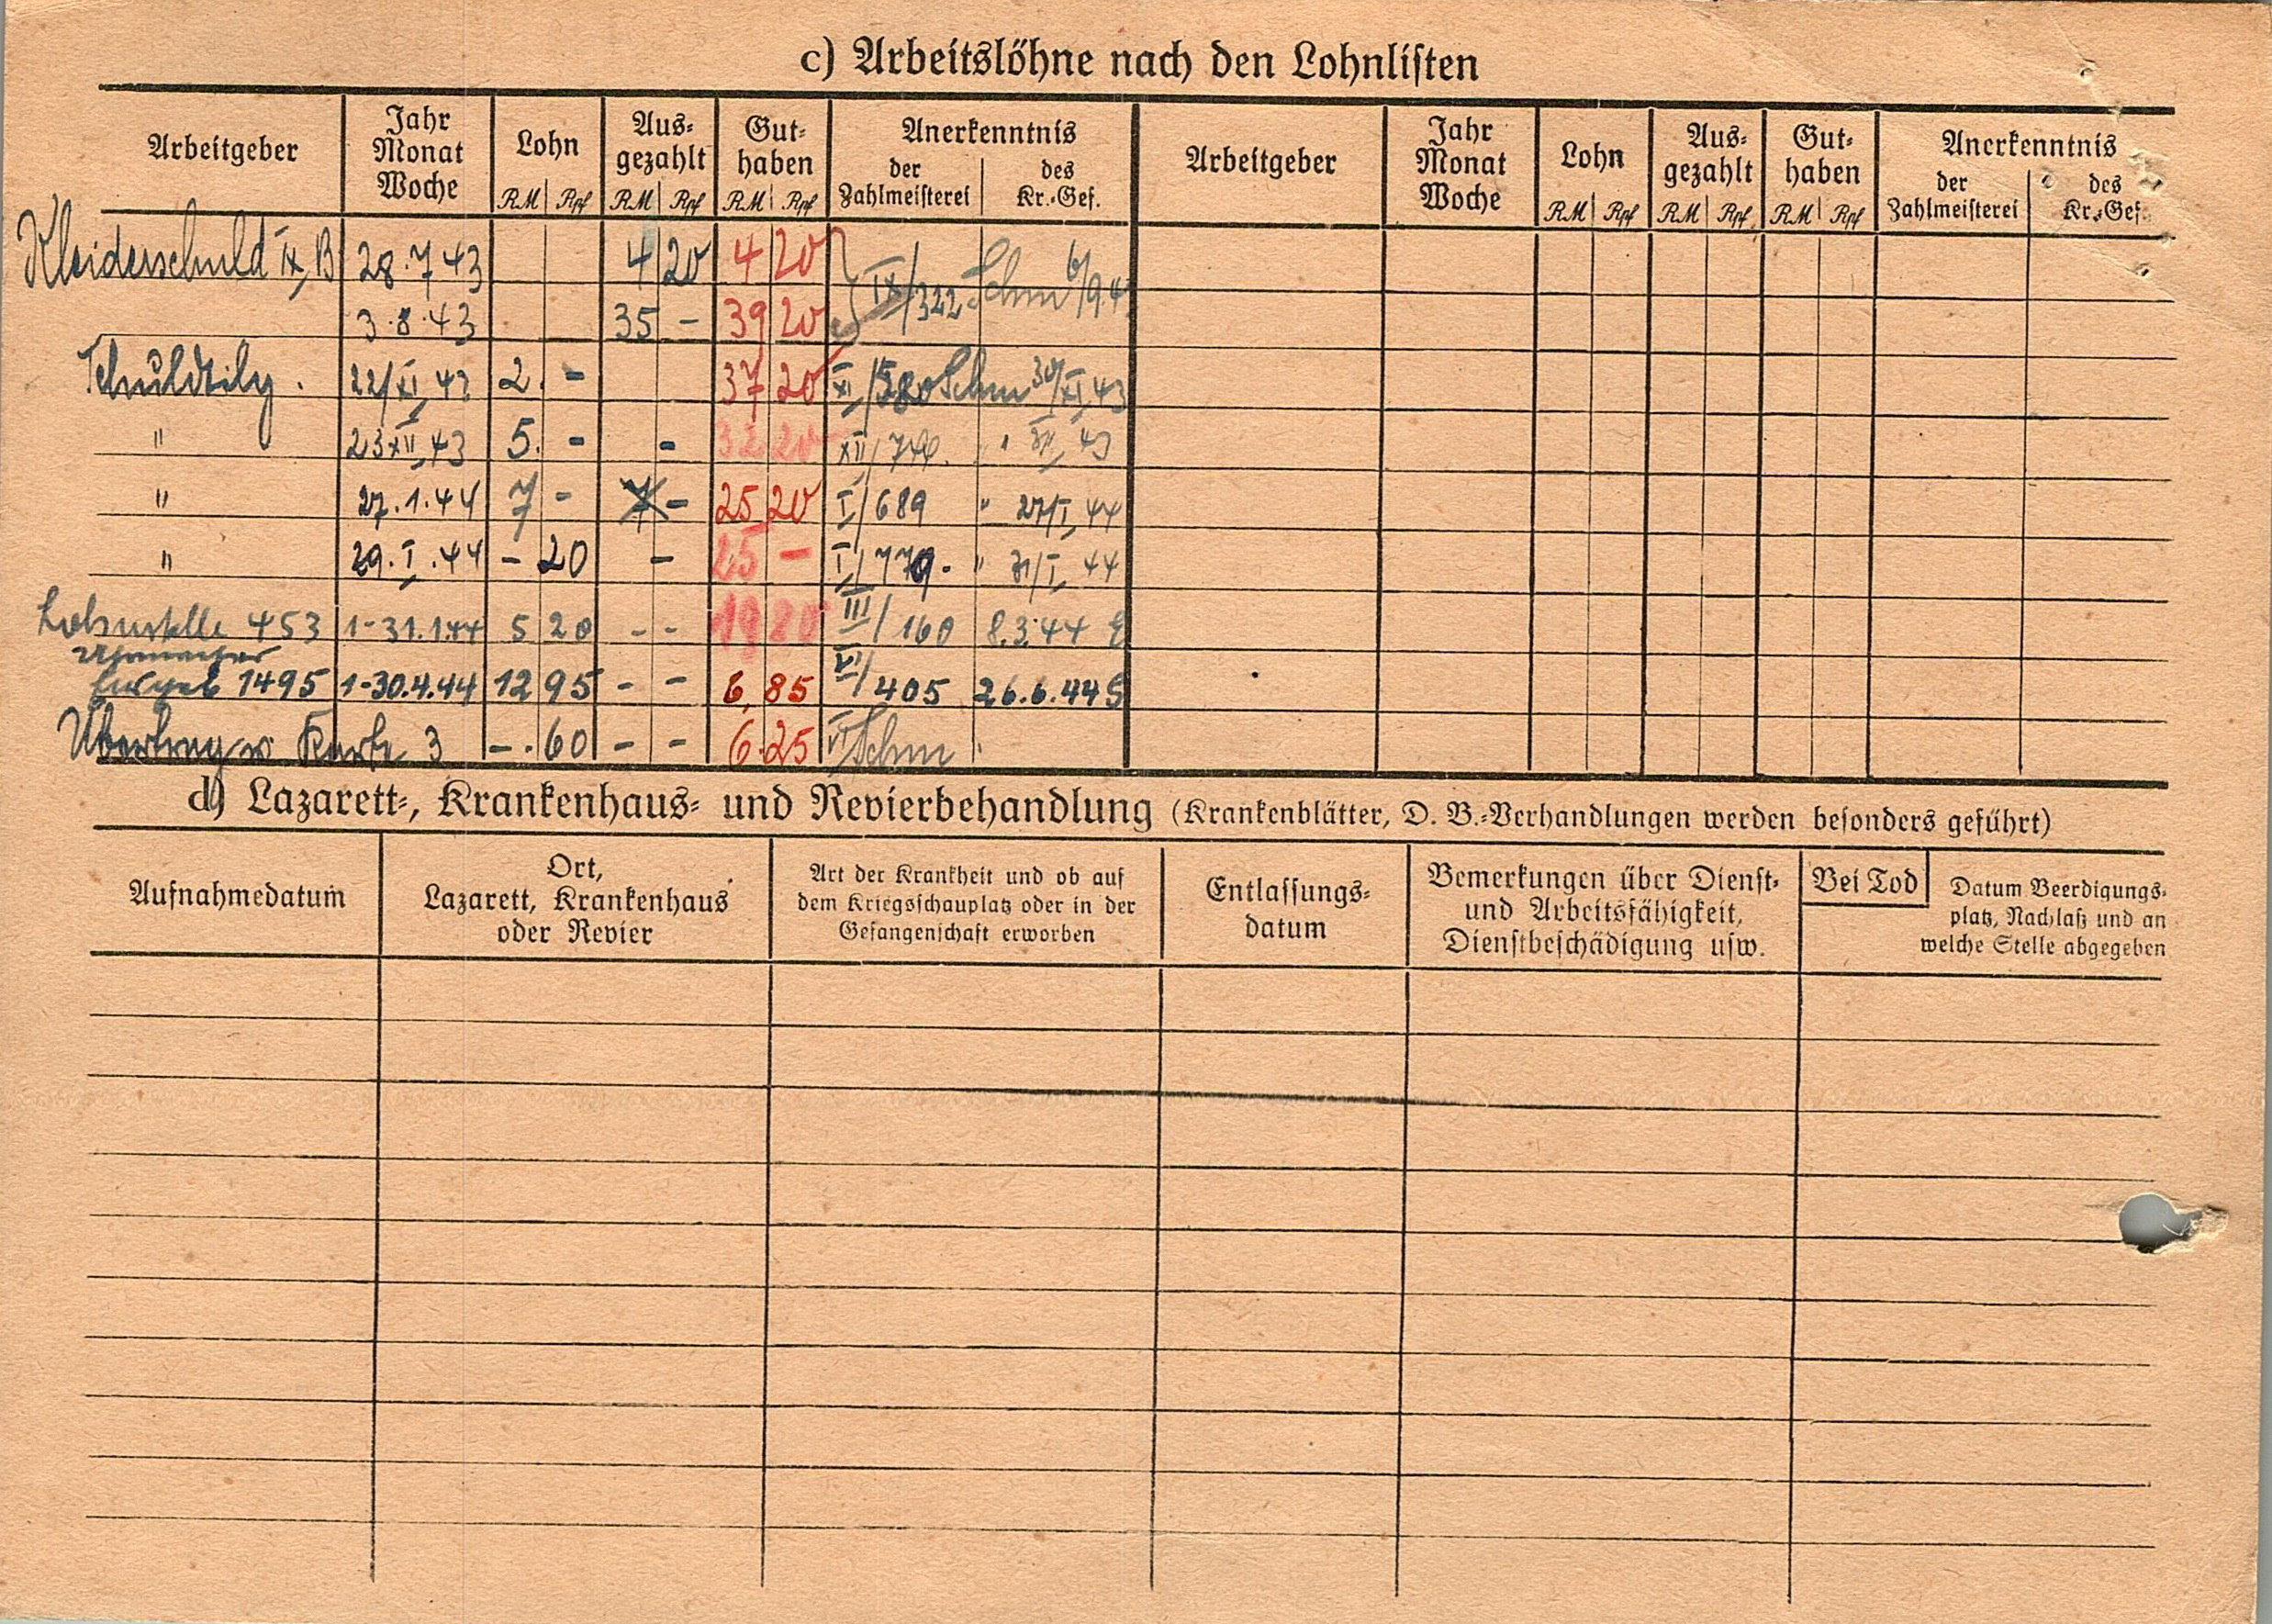 c) Arbeitslöhne nach den Lohnlisten
Arbeitgeber Jahr Monat Woche Lohn RM Rpf Aus-gezahlt RM Rpf Gut-haben RM Rpf Anerkenntnis der Zahlmeisterei des Kr.-Gef. Arbeitgeber Jahr Monat Woche Lohn RM Rpf Aus-gezahlt RM Rpf Gut-haben RM Rpf Anerkenntnis der Zahlmeisterei des Kr.-Gef.
Kleiderschuld IX B 28.7.43 4 20 4 20
3.8.43 35 - 39 20 IX/322 Schm 6/9.4
Schuldtilg. 22/XI.43 2. - 37 20 XI/580 Schm 30/XI.43
" 23 XII.43 5. - - 32 20 XII/ " 43
" 27.1.44 7 - - 25 20 I/689 " 27/I.44
" 29.I.44 - 20 - 25 - I/779. " 31/I.44
Lohnstelle 453 1-31.1.44 5 20 - - 19 80 III/160 8.3.44
1495 1-30.4.44 12 95 - - 6,85 VI/405 26.6.44
Übertrag v. Karte 3 -.60 - - 6.25 VI/Schm
d) Lazarett-, Krankenhaus- und Revierbehandlung (Krankenblätter, D. B.-Verhandlungen werden besonders geführt)
Aufnahmedatum Ort, Lazarett, Krankenhaus oder Revier Art der Krankheit und ob auf dem Kriegsschauplatz oder in der Gefangenschaft erworben Entlassungs-datum Bemerkungen über Dienst- und Arbeitsfähigkeit, Dienstbeschädigung usw. Bei Tod Datum Beerdigungs-platz, Nachlaß und an welche Stelle abgegeben